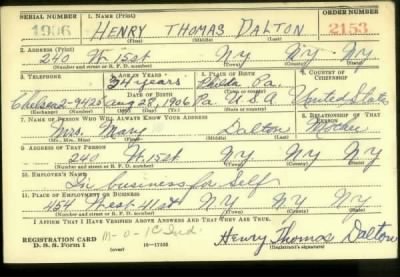 SERIAL NUMBER 1. NAME (Print) ORDER NUMBER
1906 HENRY THOMAS DALTON 2153
(First) (Middle) (Last)
2. ADDRESS (Print)
240 W. 15 St NY NY NY
(Number and street or R. F. D. number) (Town) (County) (State)
3. TELEPHONE 4. AGE IN YEARS 5. PLACE OF BIRTH 6. COUNTRY OF CITIZENSHIP
34 years Phila, Pa.
DATE OF BIRTH (Town or county)
Chelsea 2-9425 Aug 28, 1906 Pa. U S A United States
(Exchange) (Number) (Mo.) (Day) (Yr.) (State or country)
7. NAME OF PERSON WHO WILL ALWAYS KNOW YOUR ADDRESS 8. RELATIONSHIP OF THAT PERSON
Mrs. Mary Dalton Mother
(Mr., Mrs., Miss) (First) (Middle) (Last)
9. ADDRESS OF THAT PERSON
240 W. 15 St NY NY NY
(Number and street or R. F. D. number) (Town) (County) (State)
10. EMPLOYER'S NAME
In business for Self
11. PLACE OF EMPLOYMENT OR BUSINESS
454 West 41 St NY NY NY
(Number and street or R. F. D. number) (Town) (County) (State)
I AFFIRM THAT I HAVE VERIFIED ABOVE ANSWERS AND THAT THEY ARE TRUE.
REGISTRATION CARD
D. S. S. Form 1 (over) 16-17105 Henry Thomas Dalton
(Registrant's signature)